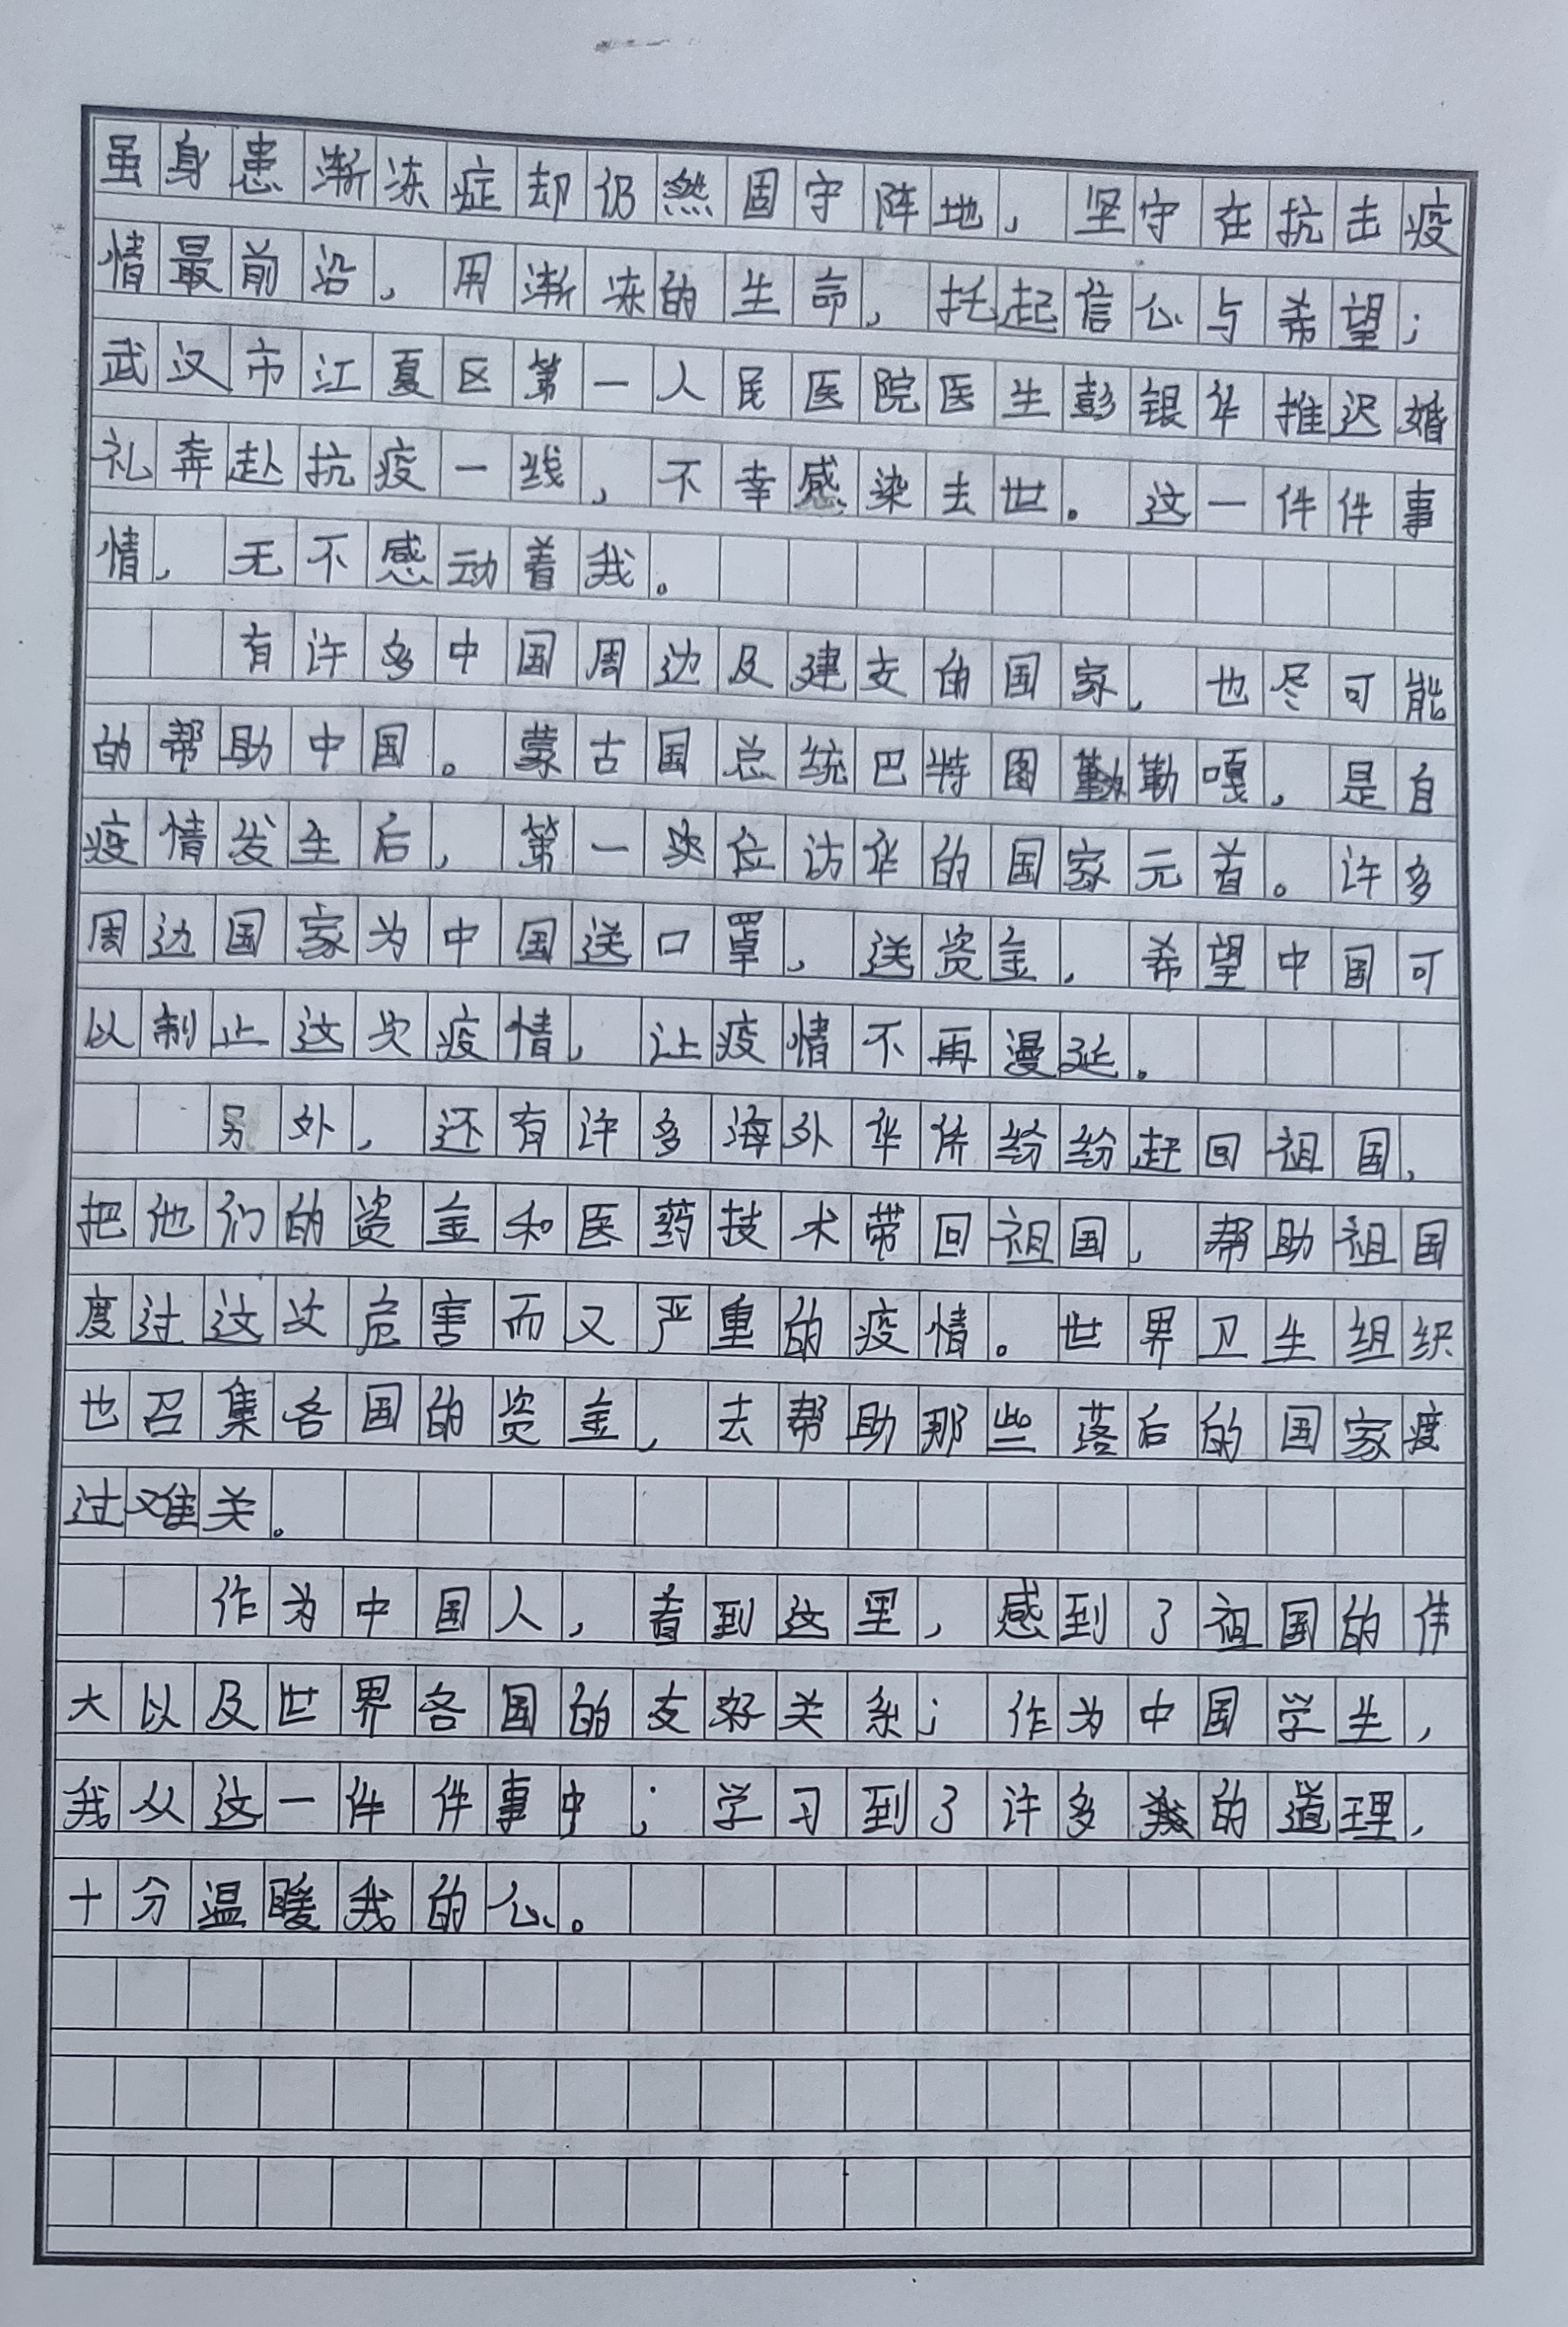 虽身患渐冻症却仍然固守阵地，坚守在抗击疫
情最前沿，用渐冻的生命，托起信心与希望；
武汉市江夏区第一人民医院医生彭银华推迟婚
礼奔赴抗疫一线，不幸感染去世。这一件件事
情，无不感动着我。
有许多中国周边及建交的国家，也尽可能
的帮助中国。蒙古国总统巴特图勒嘎，是自
疫情发生后，第一位访华的国家元首。许多
周边国家为中国送口罩，送资金，希望中国可
以制止这次疫情，让疫情不再漫延。
另外，还有许多海外华侨纷纷赶回祖国，
把他们的资金和医药技术带回祖国，帮助祖国
度过这次危害而又严重的疫情。世界卫生组织
也召集各国的资金，去帮助那些落后的国家度
过难关。
作为中国人，看到这里，感到了祖国的伟
大以及世界各国的友好关系；作为中国学生，
我从这一件件事中；学习到了许多的道理，
十分温暖我的心。